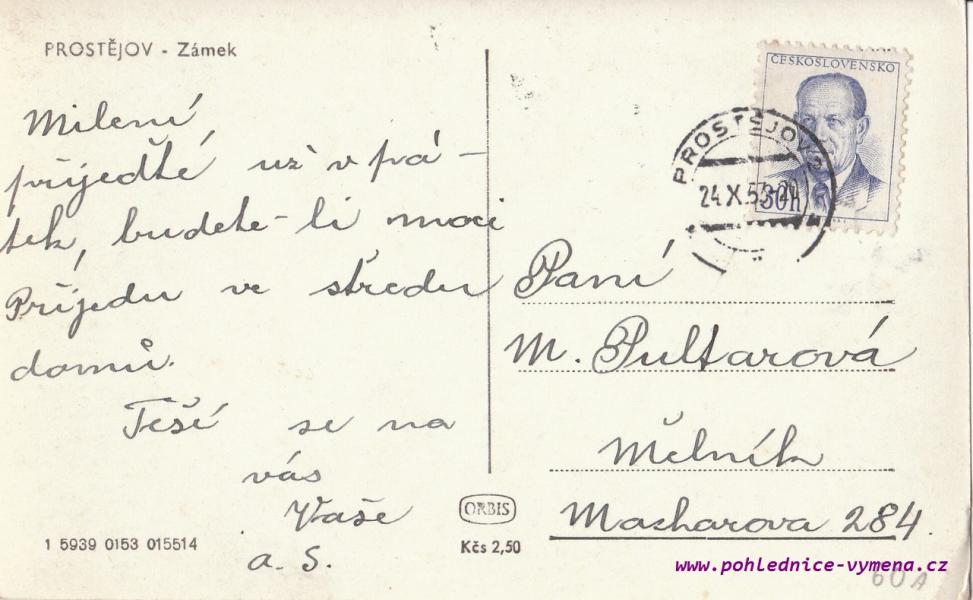 PROSTĚJOV - Zámek
Milení
přijeďte už v pá-
tek, budete-li moci
Přijedu ve středu
domů.
Těší se na
vás
Vaše
a. S.
1 5939 0153 015514
ORBIS
Kčs 2,50
ČESKOSLOVENSKO
PROSTĚJOV 2
24.X.53
30h
Paní
M. Pultarová
Mělník
Macharova 284.
www.pohlednice-vymena.cz
60 A